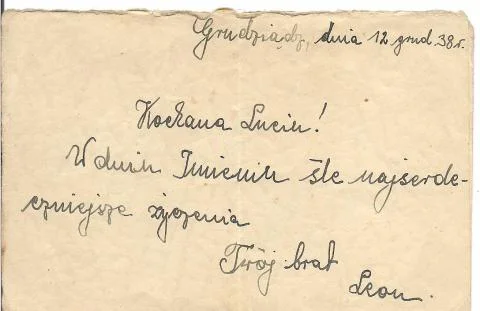 Grudziądz, dnia 12 grud. 38 r.
Kochana Luciu!
W dniu Imienin śle najserde-
czniejsze życzenia
Twój brat
Leon.